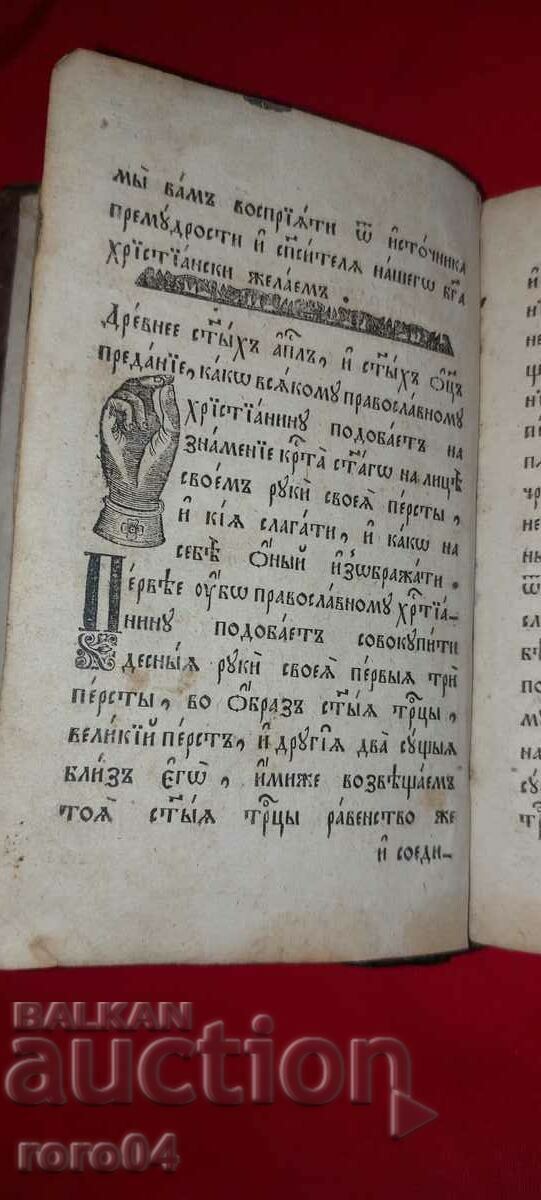 мы̀ ва́мъ воспрїѧ́ти ѿ и҆сто́чника
премꙋ́дрости и҆ сп҃си́телѧ на́шегѡ бг҃а
хрїстїа́нски жела́емъ .
Дре́внее ст҃ы́хъ а҆пⷭ҇лъ , и҆ ст҃ы́хъ ѻ҆ц҃ъ
преда́нїе , ка́кѡ всѧ́комꙋ правосла́вномꙋ
хрїстїа́нинꙋ подоба́етъ на
зна́менїе крⷭ҇та̀ ст҃а́гѡ на лицѣ̀
свое́мъ рꙋкѝ своеѧ̀ пе́рсты ,
и҆ кі́ѧ слага́ти , и҆ ка́кѡ на
себѣ̀ ѻ҆́ный и҆зѡбража́ти .
Пе́рвѣе ᲂу҆́бѡ правосла́вномꙋ хрⷭ҇тїа́-
нинꙋ подоба́етъ совокꙋпи́ти
десны́ѧ рꙋкѝ своеѧ̀ пе́рвыѧ трѝ
пе́рсты , во ѻ҆́бразъ ст҃ы́ѧ трⷪ҇цы ,
вели́кїй пе́рстъ , и҆ дрꙋгі̑ѧ два̀ сꙋ́щыѧ
бли́зъ є҆гѡ̀ , и҆́миже возвѣща́емъ
тоѧ̀ ст҃ы́ѧ трⷪ҇цы ра́венство же
и҆ соеди-
BALKAN
auction
roro04